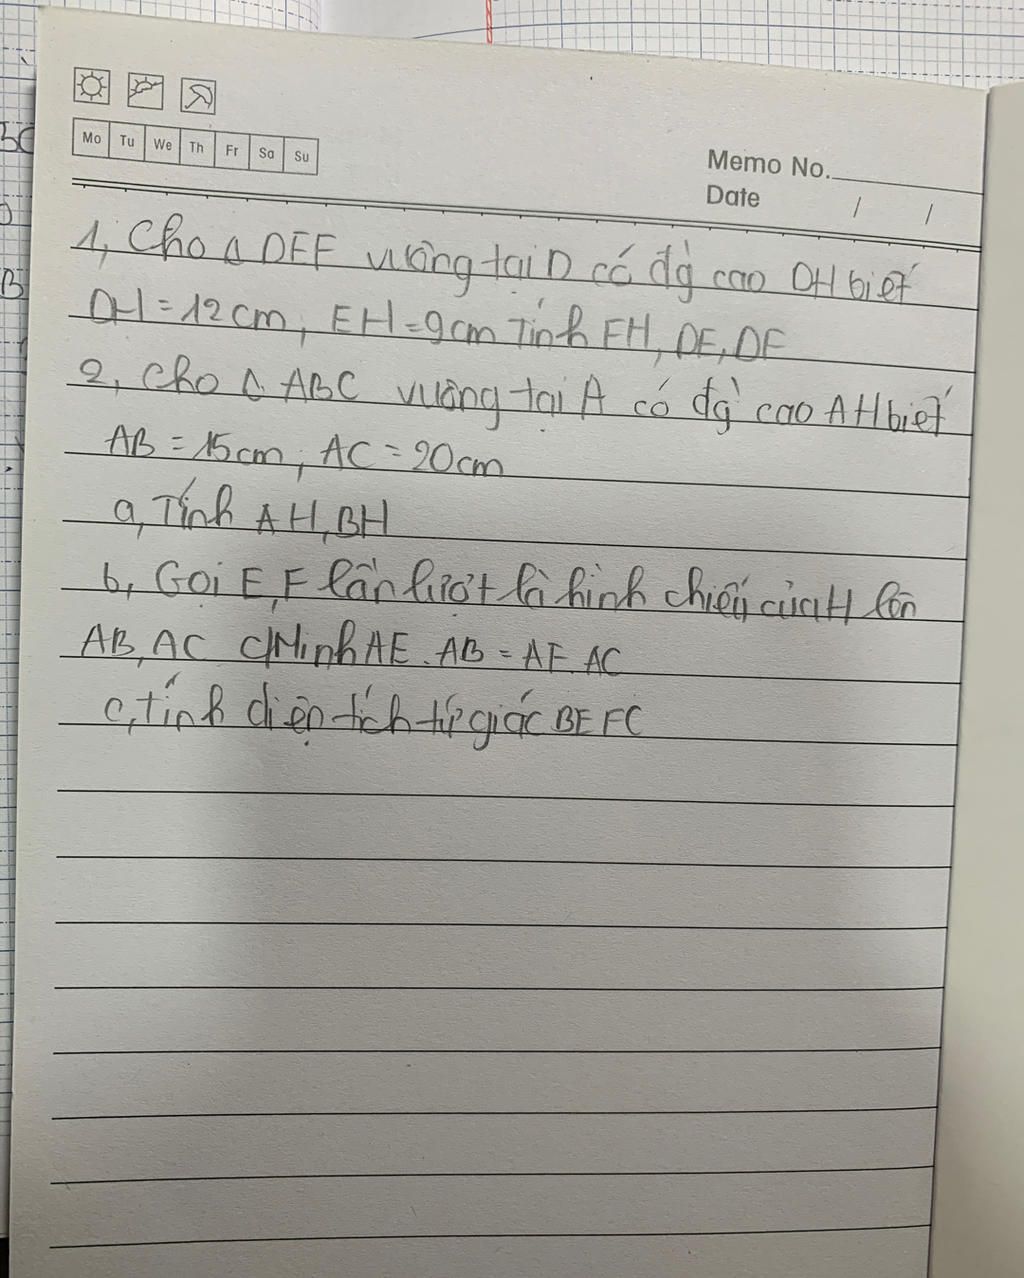 Mo Tu We Th Fr Sa Su
Memo No.
Date / /
1, Cho Δ DEF vuông tại D có đg̀ cao DH biết
DH = 12 cm, EH = 9cm Tính FH, DE, DF
2, Cho Δ ABC vuông tại A có đg̀ cao AH biết
AB = 15cm, AC = 20cm
a, Tính AH, BH
b, Gọi E, F lần lượt là hình chiếu của H lên
AB, AC c/Minh AE . AB = AF . AC
c, tính diện tích tứ giác BEFC